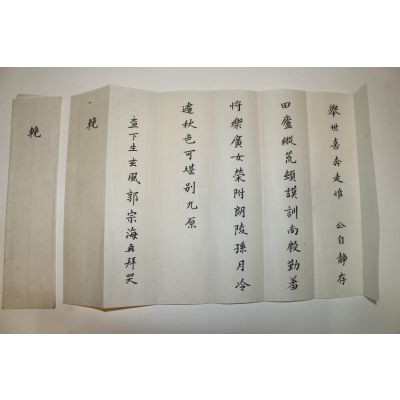 舉世喜奔走惟 公自靜存
田廬縱荒頓謨訓尚殷勤羞
將樂廣女榮附朗陵孫月冷
遽秋色可堪別九原
查下生玄風郭宗海再拜哭
輓
輓